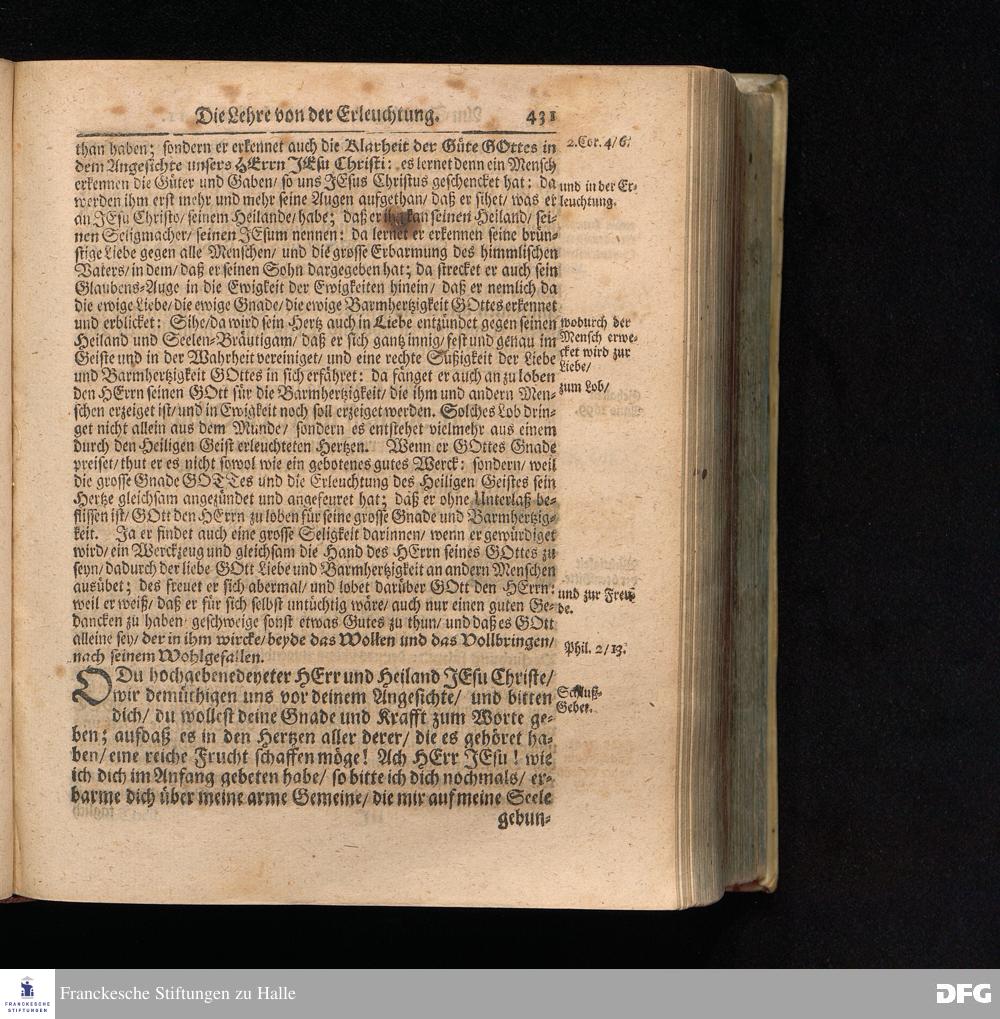 Die Lehre von der Erleuchtung. 431
than haben; sondern er erkennet auch die Klarheit der Güte GOttes in
dem Angesichte unsers HErrn JEsu Christi: es lernet denn ein Mensch
erkennen die Güter und Gaben/ so uns JEsus Christus geschencket hat: da
werden ihm erst mehr und mehr seine Augen aufgethan/ daß er sihet/ was er
an JEsu Christo/ seinem Heilande/ habe; daß er ihn kan seinen Heiland/ sei-
nen Seligmacher/ seinen JEsum nennen: da lernet er erkennen seine brün-
stige Liebe gegen alle Menschen/ und die grosse Erbarmung des himmlischen
Vaters/ in dem/ daß er seinen Sohn dargegeben hat; da strecket er auch sein
Glaubens-Auge in die Ewigkeit der Ewigkeiten hinein/ daß er nemlich da
die ewige Liebe/ die ewige Gnade/ die ewige Barmhertzigkeit GOttes erkennet
und erblicket: Sihe/ da wird sein Hertz auch in Liebe entzündet gegen seinen
Heiland und Seelen-Bräutigam/ daß er sich gantz innig/ fest und genau im
Geiste und in der Wahrheit vereiniget/ und eine rechte Süßigkeit der Liebe
und Barmhertzigkeit GOttes in sich erfähret: da fänget er auch an zu loben
den HErrn seinen GOtt für die Barmhertzigkeit/ die ihm und andern Men-
schen erzeiget ist/ und in Ewigkeit noch soll erzeiget werden. Solches Lob drin-
get nicht allein aus dem Munde/ sondern es entstehet vielmehr aus einem
durch den Heiligen Geist erleuchteten Hertzen. Wenn er GOttes Gnade
preiset/ thut er es nicht sowol wie ein gebotenes gutes Werck: sondern/ weil
die grosse Gnade GOTTes und die Erleuchtung des Heiligen Geistes sein
Hertze gleichsam angezündet und angefeuret hat; daß er ohne Unterlaß be-
flissen ist/ GOtt den HErrn zu loben für seine grosse Gnade und Barmhertzig-
keit. Ja er findet auch eine grosse Seligkeit darinnen/ wenn er gewürdiget
wird/ ein Werckzeug und gleichsam die Hand des HErrn seines GOttes zu
seyn/ dadurch der liebe GOtt Liebe und Barmhertzigkeit an andern Menschen
ausübet; des freuet er sich abermal/ und lobet darüber GOtt den HErrn:
weil er weiß/ daß er für sich selbst untüchtig wäre/ auch nur einen guten Ge-
dancken zu haben geschweige sonst etwas Gutes zu thun/ und daß es GOtt
alleine sey/ der in ihm wircke/ beyde das Wollen und das Vollbringen/
nach seinem Wohlgefallen.
O Du hochgebenedeyeter HErr und Heiland JEsu Christe/
wir demüthigen uns vor deinem Angesichte/ und bitten
dich/ du wollest deine Gnade und Krafft zum Worte ge-
ben; aufdaß es in den Hertzen aller derer/ die es gehöret ha-
ben/ eine reiche Frucht schaffen möge! Ach HErr JEsu! wie
ich dich im Anfang gebeten habe/ so bitte ich dich nochmals/ er-
barme dich über meine arme Gemeine/ die mir auf meine Seele
gebun-
2. Cor. 4/6.
und in der Er-
leuchtung.
wodurch der
Mensch erwe-
cket wird zur
Liebe/
zum Lob/
und zur Freu-
de.
Phil. 2/13.
Schluß-
Gebet.
FRANCKESCHE
STIFTUNGEN
Franckesche Stiftungen zu Halle
DFG